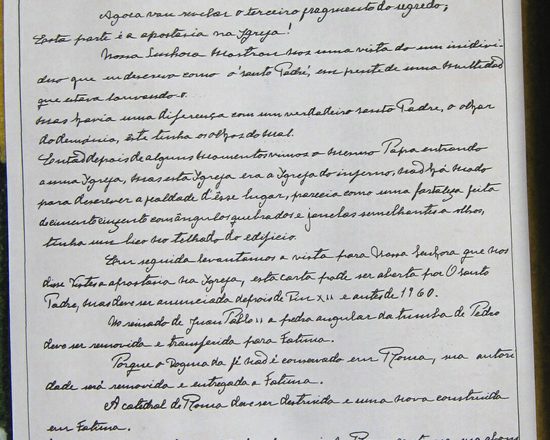 Agora vou revelar o terceiro fragmento do segredo;
Esta parte é a apostasia na Igreja!
Nossa Senhora mostrou nos uma vista do um individ
duo que eu descrevo como o 'santo Padre', em frente de uma multidão
que estava louvando-o.
Mas havia uma diferença com um verdadeiro santo Padre, o olhar
do demónio, êste tinha os olhos do mal.
Então depois de alguns momentos vimos o mesmo Papa entrando
a uma Igreja, mas esta Igreja era a Igreja do inferno, não há modo
para descrever a fealdade d'êsse lugar, parecia como uma fortaleza feita
de cimento cinzento com ângulos quebrados e janelas semelhantes a olhos,
tinha um bico no telhado do edificio.
Em seguida levantamos a vista para Nossa Senhora que nos
disse Vistes a apostasia na Igreja, esta carta pode ser aberta por O santo
Padre, mas deve ser anunciada depois de Pio XII e antes de 1960.
No reinado de Juan Pablo II a pedra angular da tumba de Pedro
deve ser removida e transferida para Fatima.
Porque o dogma da fé não é conservado em Roma, sua autori
dade será removida e entregada a Fatima.
A catedral de Roma deve ser destruida e uma nova construida
em Fatima.